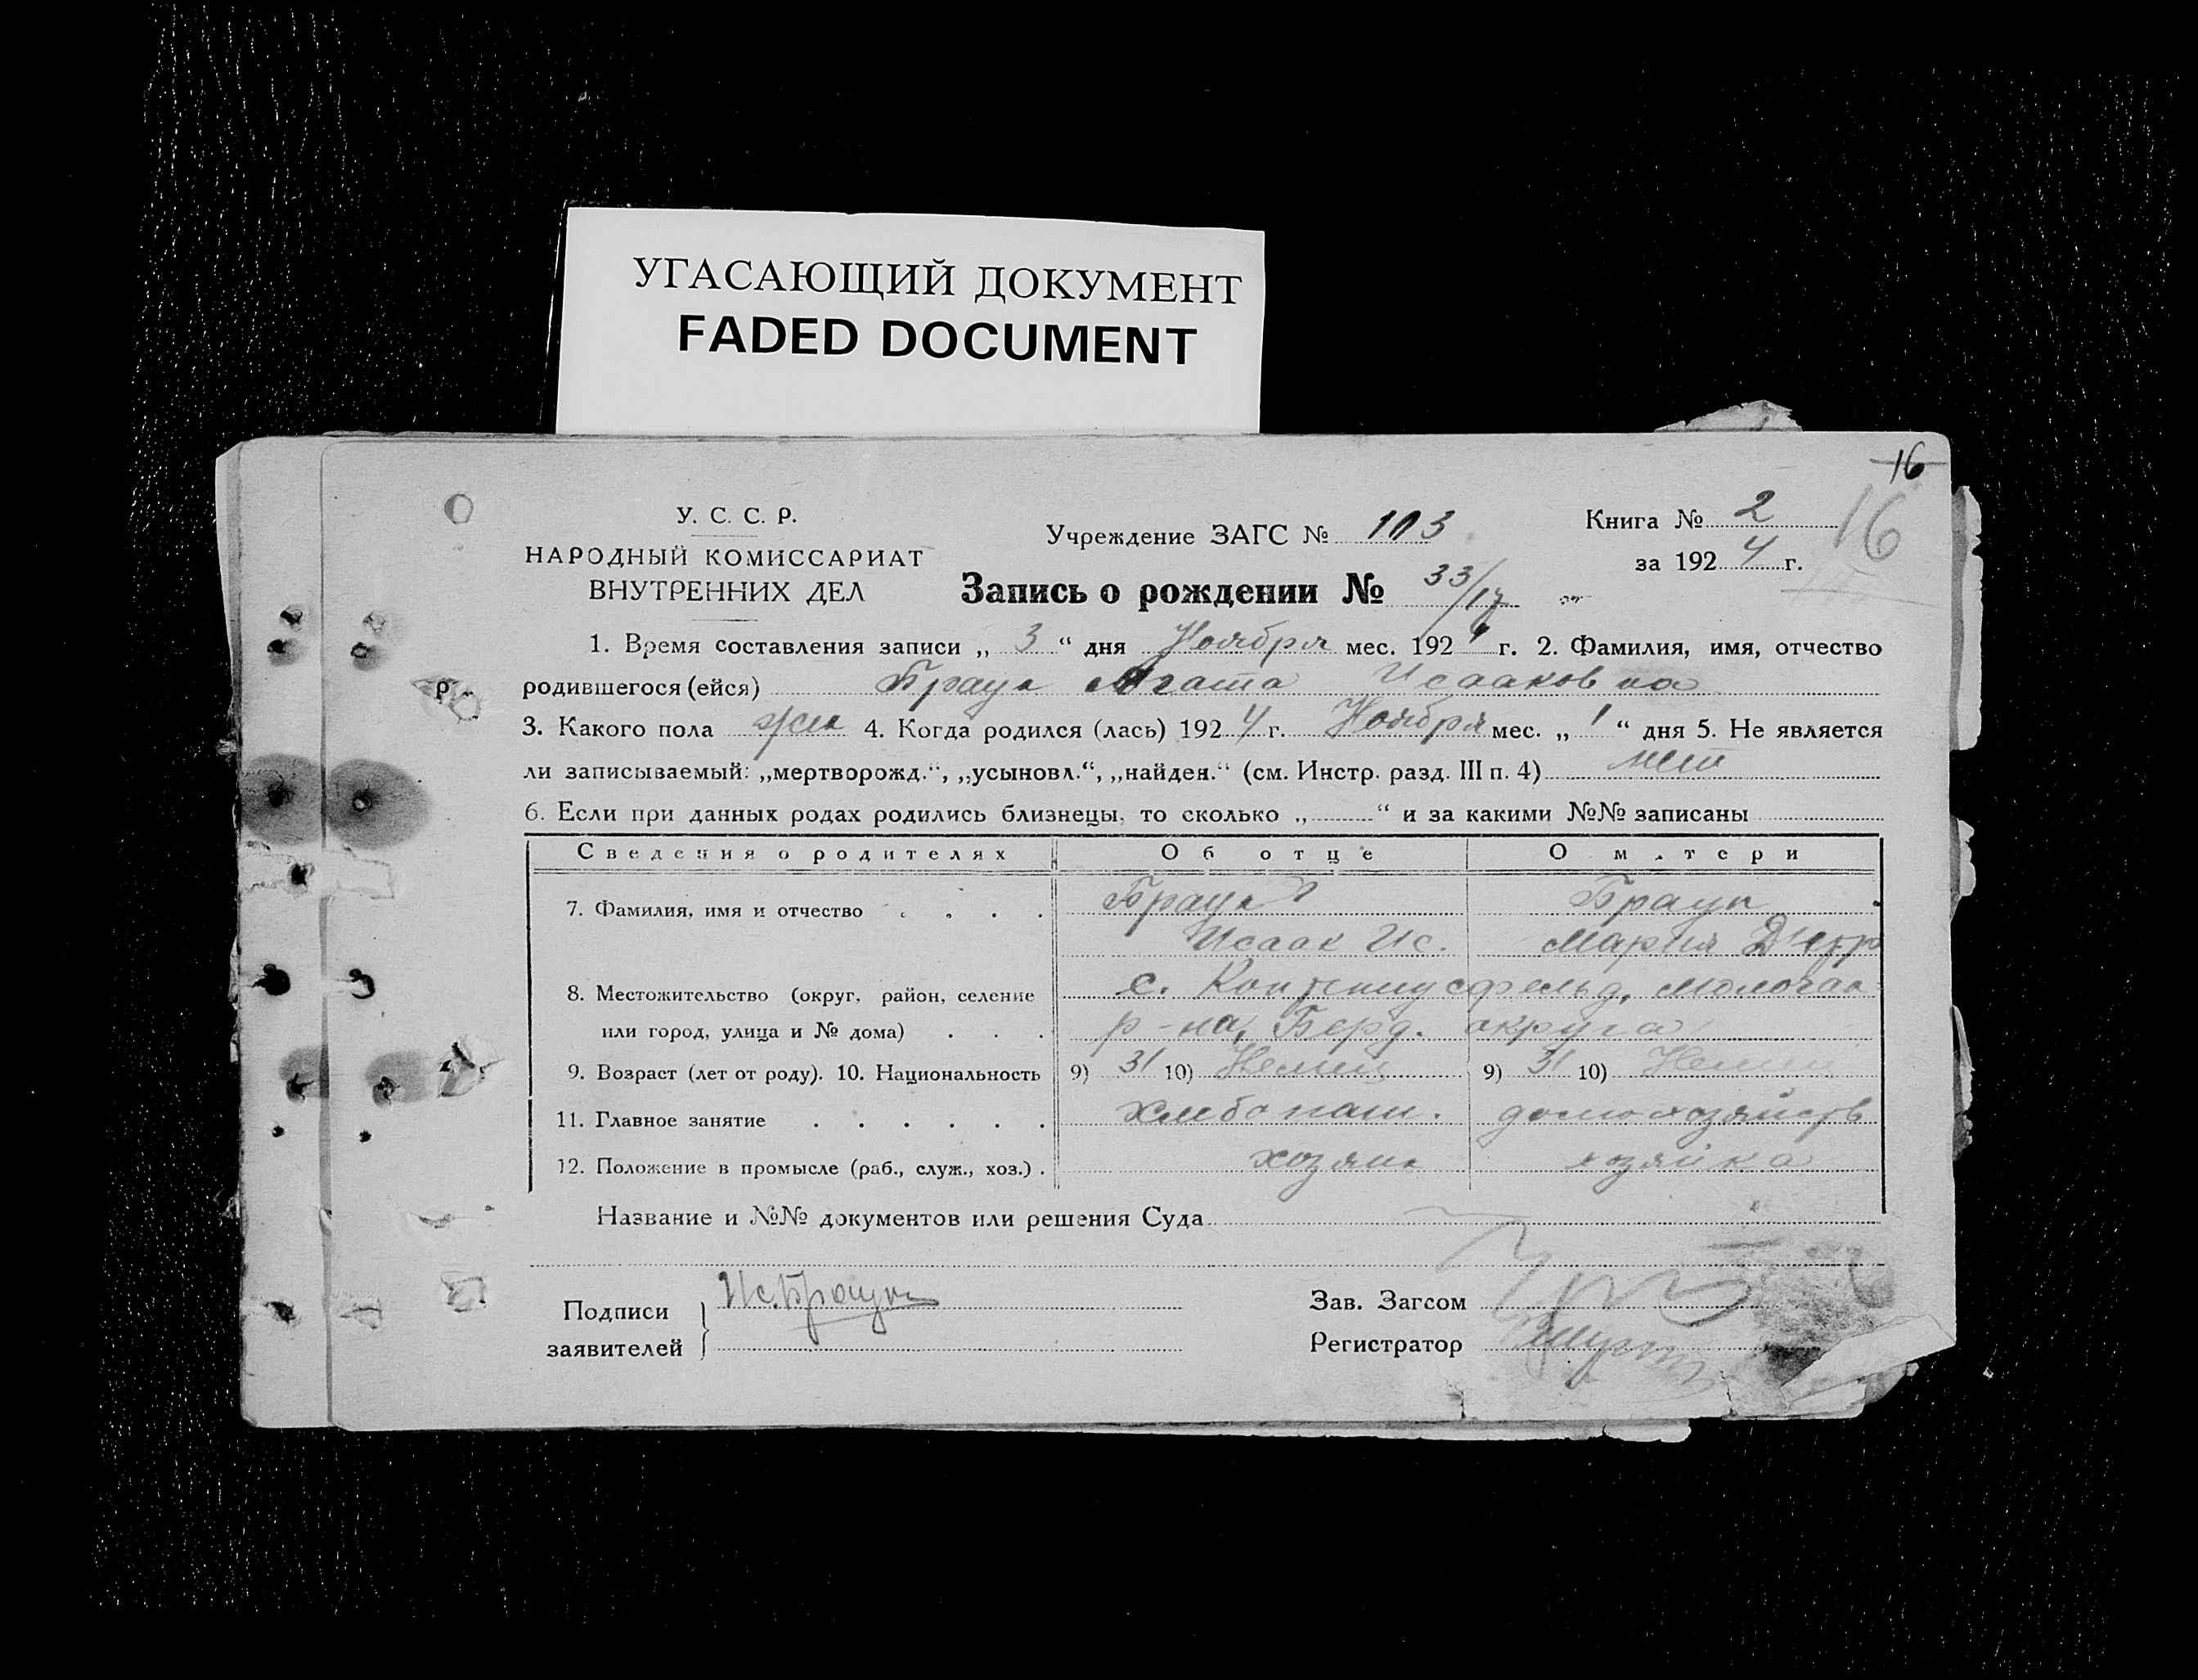 УГАСАЮЩИЙ ДОКУМЕНТ
FADED DOCUMENT
16
У. С. С. Р.
НАРОДНЫЙ КОМИССАРИАТ
ВНУТРЕННИХ ДЕЛ
Учреждение ЗАГС № 103
Книга № 2
16
за 1924 г.
Запись о рождении № 33/17
1. Время составления записи „ 3 “ дня Ноября мес. 1924 г. 2. Фамилия, имя, отчество
родившегося (ейся) Браун Агата Исааковна
3. Какого пола жен 4. Когда родился (лась) 1924 г. Ноября мес. „ 1 “ дня 5. Не является
ли записываемый: „мертворожд.“, „усыновл.“, „найден.“ (см. Инстр. разд. III п. 4) нет
6. Если при данных родах родились близнецы, то сколько „ “ и за какими №№ записаны
Сведения о родителях Об отце О матери
7. Фамилия, имя и отчество Браун Браун
Исаак Ис. Мария Дитр
8. Местожительство (округ, район, селение с. Контениусфельд, Молочан
или город, улица и № дома) р-на, Берд. округа
9. Возраст (лет от роду). 10. Национальность 9) 31 10) Немец 9) 31 10) Немец
11. Главное занятие хлебопаш. домохозяйств
12. Положение в промысле (раб., служ., хоз.) хозяин хозяйка
Название и №№ документов или решения Суда
Подписи
заявителей
Ис.Браун
Зав. Загсом
Регистратор